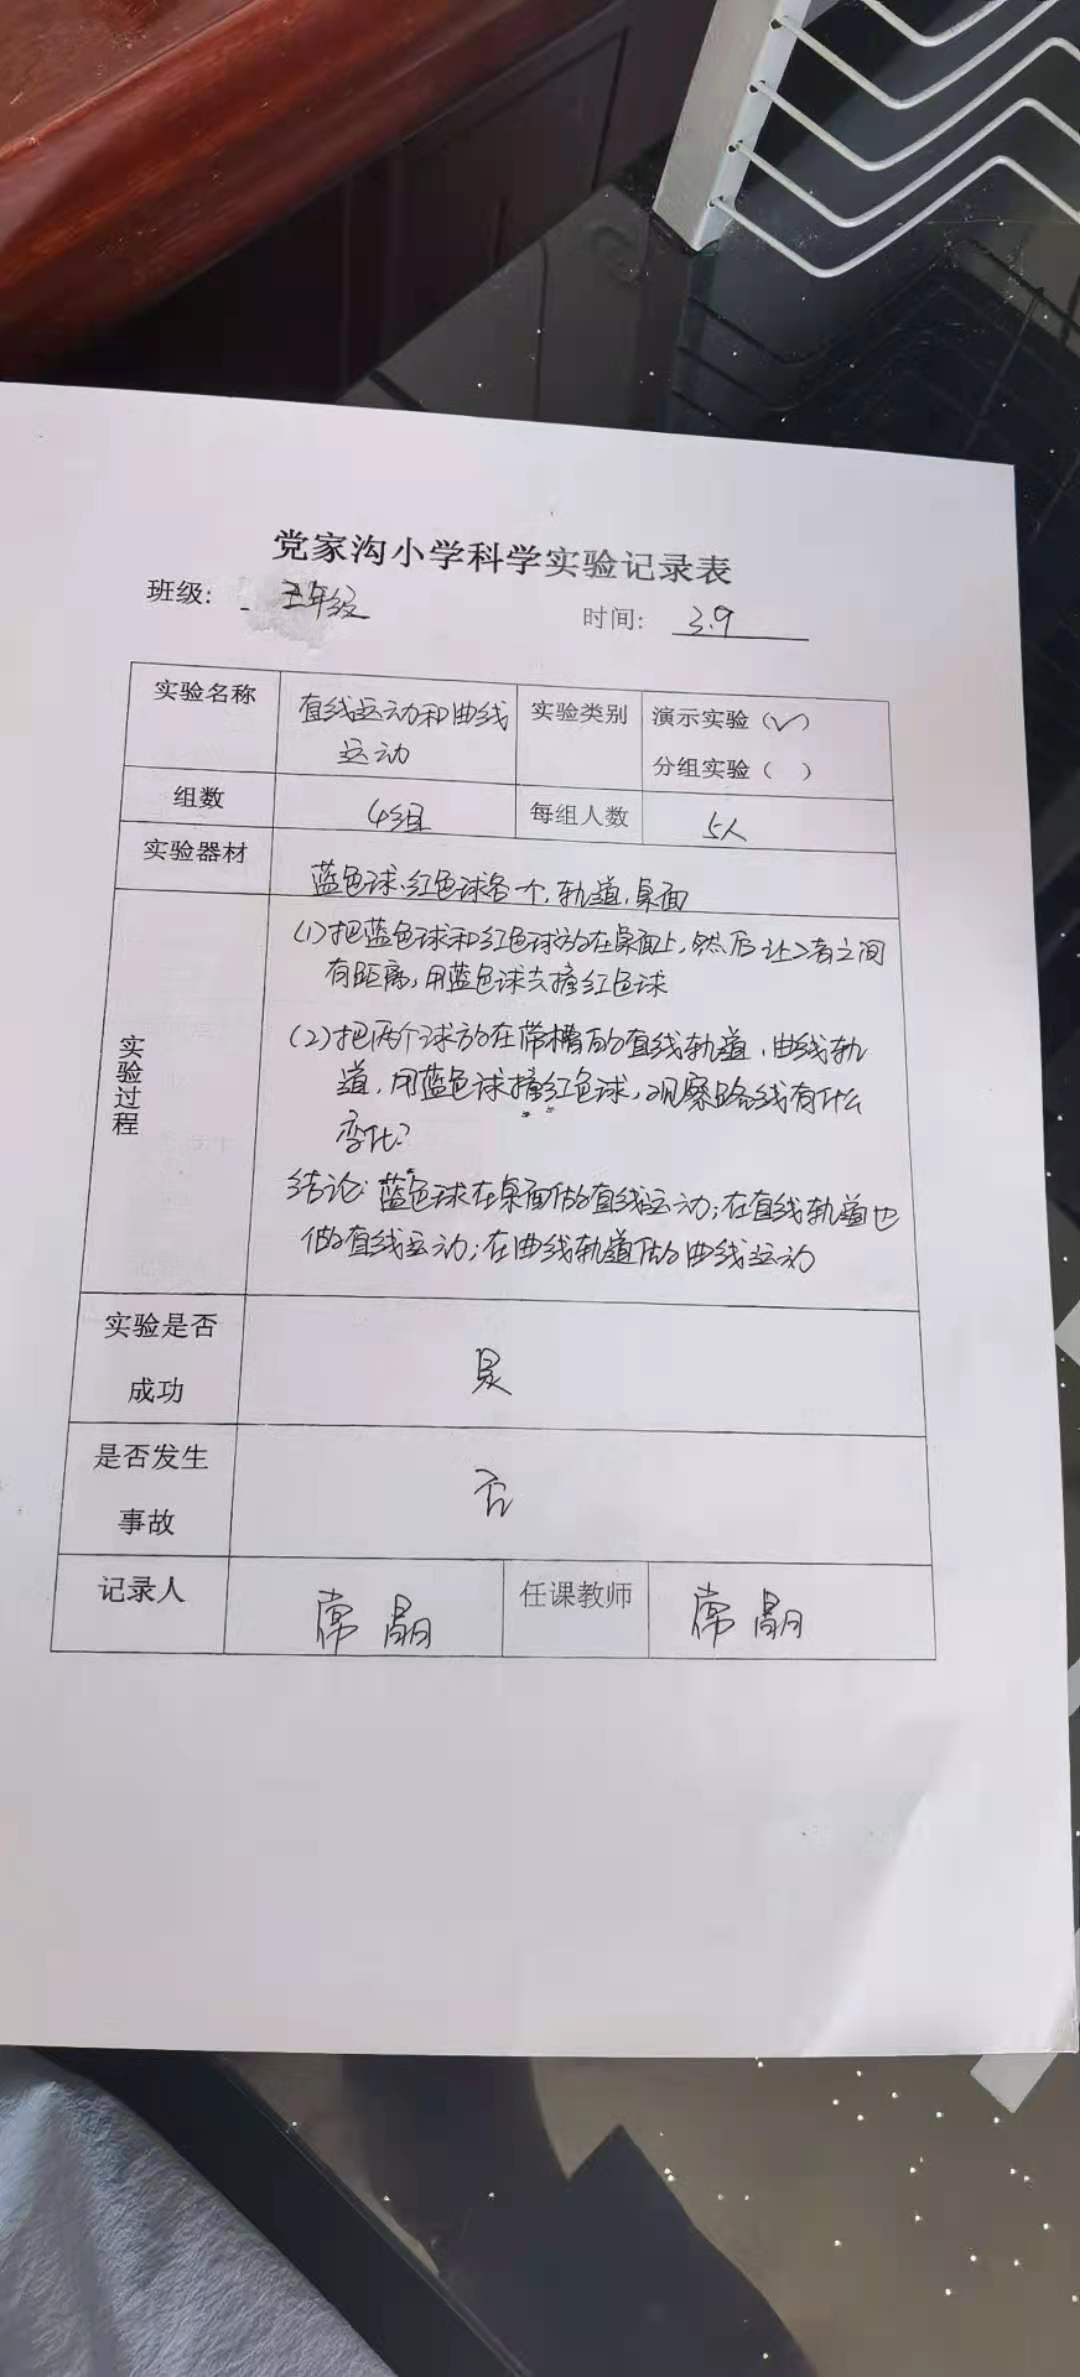 党家沟小学科学实验记录表
班级: 五年级 时间: 3.9
实验名称 直线运动和曲线 实验类别 演示实验(✓)
运动 分组实验( )
组数 4组 每组人数 5人
实验器材 蓝色球、红色球各一个,轨道,桌面
实验过程
(1)把蓝色球和红色球放在桌面上,然后让2者之间
有距离,用蓝色球去撞红色球
(2)把两个球放在带槽的直线轨道、曲线轨
道,用蓝色球撞红色球,观察路线有什么
变化?
结论:蓝色球在桌面做直线运动;在直线轨道也
做直线运动;在曲线轨道做曲线运动
实验是否
成功 是
是否发生
事故 否
记录人 席 任课教师 席